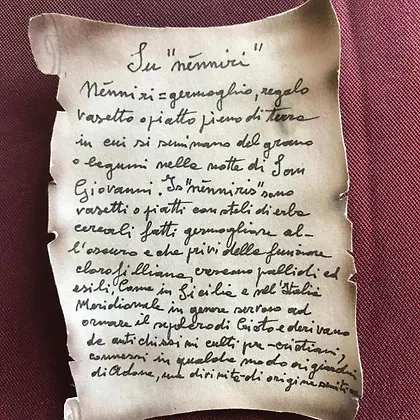 Su "nénniri"
Nénniri = germoglio, regalo
vasetto o piatto pieno di terra
in cui si seminano del grano
o legumi nella notte di San
Giovanni. Is "nénniris" sono
vasetti o piatti con steli di erba
cereali fatti germogliare al-
l'oscuro e che privi della funzione
clorofilliana, crescono pallidi ed
esili. Come in Sicilia e nell'Italia
Meridionale in genere servono ad
ornare il sepolcro di Cristo e derivano
da antichissimi culti pre-cristiani,
connessi in qualche modo ai giardini
di Adone, una divinità di origine